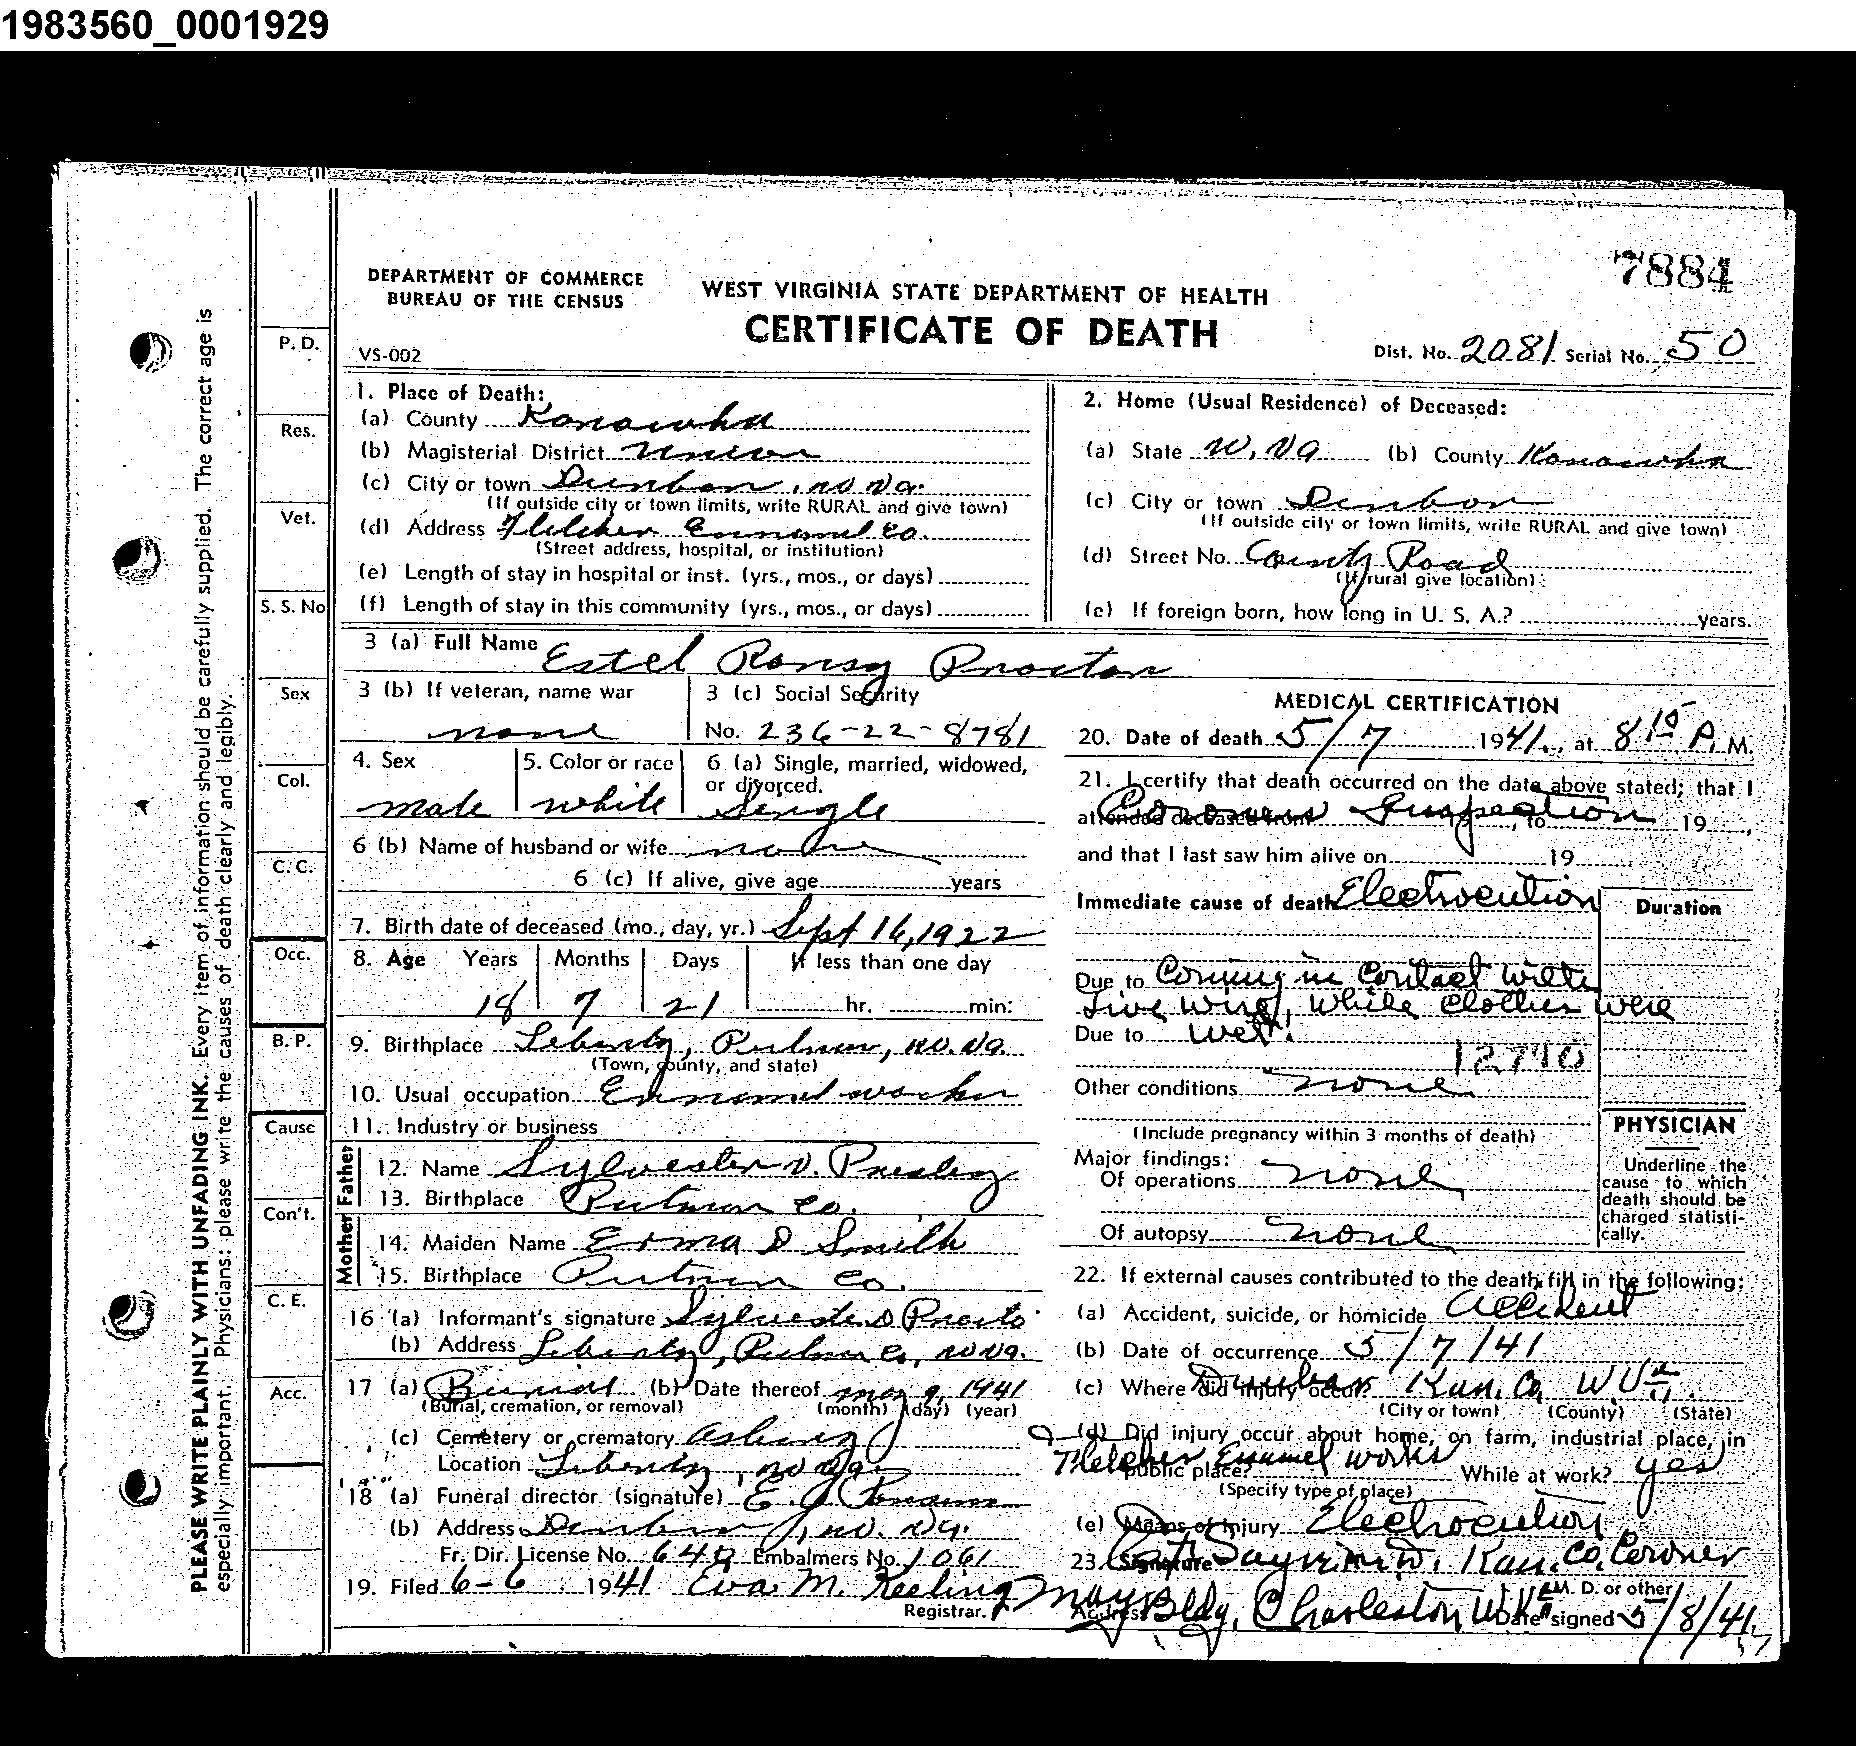 1983560_0001929
7884
DEPARTMENT OF COMMERCE
BUREAU OF THE CENSUS
WEST VIRGINIA STATE DEPARTMENT OF HEALTH
CERTIFICATE OF DEATH
VS-002
Dist. No. 2081 Serial No. 50
PLEASE WRITE PLAINLY WITH UNFADING INK. Every item of information should be carefully supplied. The correct age is
especially important. Physicians: please write the causes of death clearly and legibly.
P. D.
Res.
Vet.
S. S. No
Sex
Col.
C. C.
Occ.
B. P.
Cause
Con't.
C. E.
Acc.
1. Place of Death:
(a) County Kanawha
(b) Magisterial District Union
(c) City or town Dunbar, W. Va.
(If outside city or town limits, write RURAL and give town)
(d) Address Fletcher Enamel Co.
(Street address, hospital, or institution)
(e) Length of stay in hospital or inst. (yrs., mos., or days)
(f) Length of stay in this community (yrs., mos., or days)
2. Home (Usual Residence) of Deceased:
(a) State W. Va (b) County Kanawha
(c) City or town Dunbar
(If outside city or town limits, write RURAL and give town)
(d) Street No. County Road
(If rural give location)
(e) If foreign born, how long in U. S. A.? years.
3 (a) Full Name Estel
3 (b) If veteran, name war
none
3 (c) Social Security
No. 236-22-8781
4. Sex
male
5. Color or race
white
6 (a) Single, married, widowed,
or divorced.
Single
6 (b) Name of husband or wife none
6 (c) If alive, give age years
7. Birth date of deceased (mo., day, yr.) Sept 16, 1922
8. Age Years Months Days If less than one day
18 7 21 hr. min:
9. Birthplace Liberty, Putnam, W. Va.
(Town, county, and state)
10. Usual occupation Enamel worker
11. Industry or business
Father
12. Name Sylvester D.
13. Birthplace Putnam Co.
Mother
14. Maiden Name Erma D Smith
15. Birthplace Putnam Co.
16 (a) Informant's signature Sylvester D
(b) Address Liberty, Putnam Co, W Va.
17 (a) Burial (b) Date thereof May 9, 1941
(Burial, cremation, or removal) (month) (day) (year)
(c) Cemetery or crematory
Location Liberty, W Va.
18 (a) Funeral director (signature) E.
(b) Address Dunbar, W. Va.
Fr. Dir. License No. Embalmers No. 1061
19. Filed 6-6 1941 Eva M. Keeling
Registrar.
MEDICAL CERTIFICATION
20. Date of death 5/7 1941., at 8 15 P. M.
21. I certify that death occurred on the date above stated; that I
attended deceased from Coroners Inspection, to 19
and that I last saw him alive on 19
Immediate cause of death Electrocution
Duration
Due to Coming in Contact with
Live wire, while clothes were
Due to wet.
12770
Other conditions none
(Include pregnancy within 3 months of death)
Major findings:
Of operations none
Of autopsy none
PHYSICIAN
Underline the
cause to which
death should be
charged statisti-
cally.
22. If external causes contributed to the death fill in the following:
(a) Accident, suicide, or homicide Accident
(b) Date of occurrence 5/7/41
(c) Where did injury occur? Dunbar Kan. Co, W Va.
(City or town) (County) (State)
(d) Did injury occur about home, on farm, industrial place, in
public place? Fletcher Enamel works While at work? yes
(Specify type of place)
(e) Means of injury Electrocution
23. Signature M.D. Kan. Co. Coroner
M. D. or other
Address May Bldg. Charleston, W Va Date signed 5/8/41